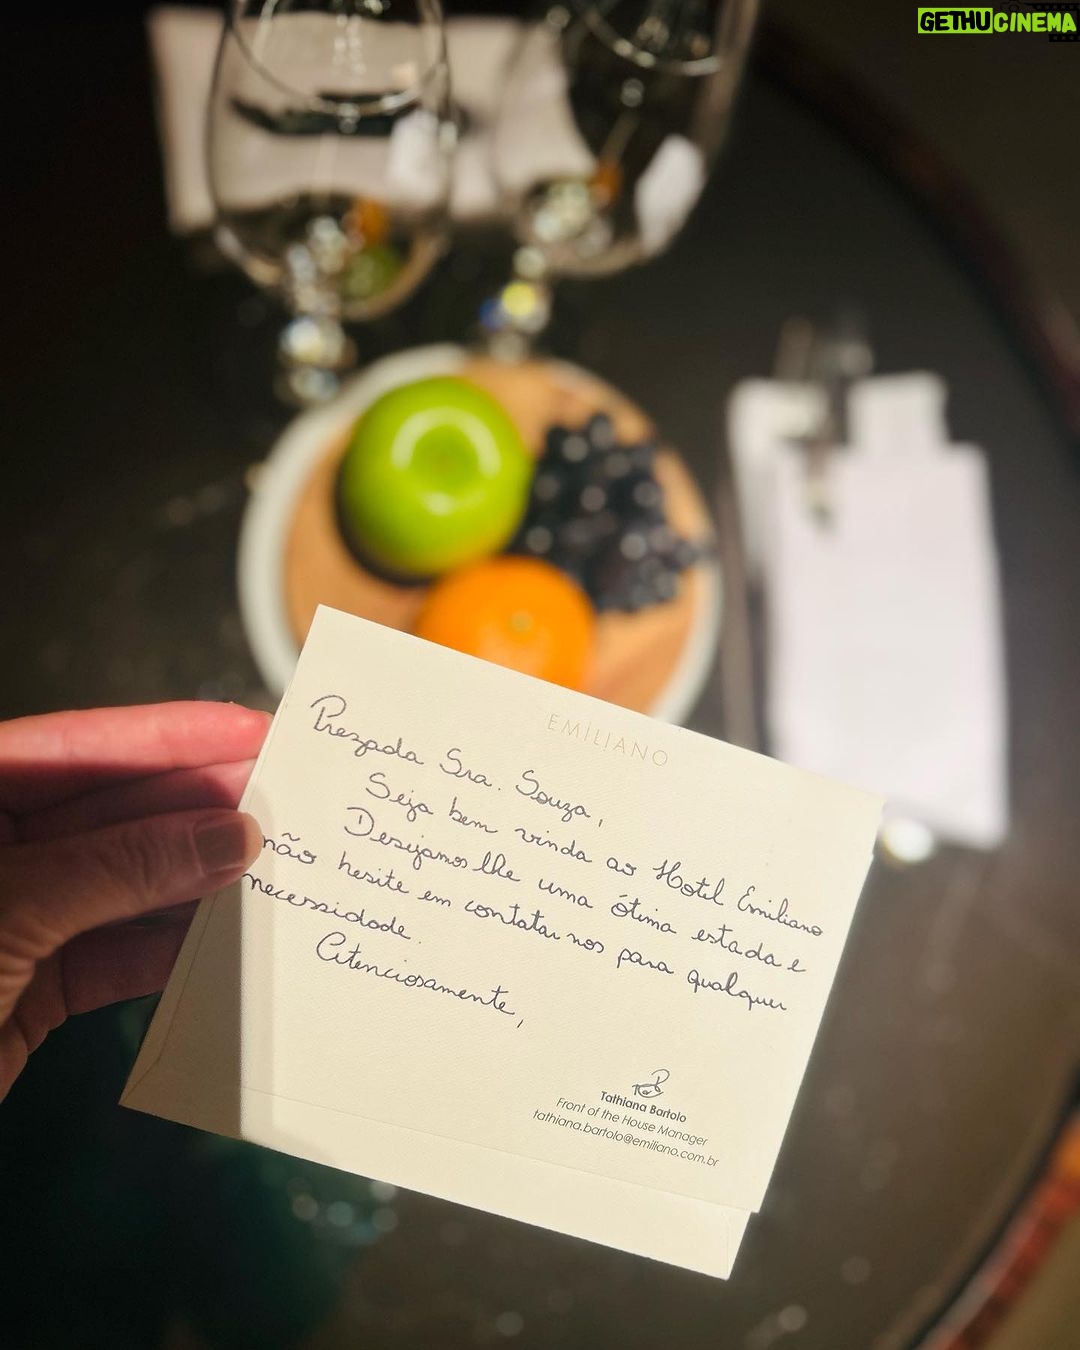 GETHUCINEMA
EMILIANO
Prezada Sra. Souza,
Seja bem vinda ao Hotel Emiliano
Desejamos lhe uma ótima estada e
não hesite em contatar nos para qualquer
necessidade.
Atenciosamente,
Tathiana Bartolo
Front of the House Manager
tathiana.bartolo@emiliano.com.br